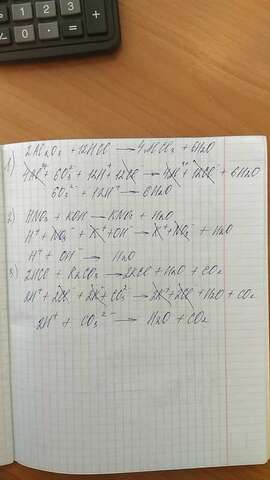 1) 2Al₂O₃ + 12HCl → 4AlCl₃ + 6H₂O
4Al³⁺ + 6O₃²⁻ + 12H⁺ + 12Cl⁻ → 4Al³⁺ + 12Cl⁻ + 6H₂O
6O₃²⁻ + 12H⁺ → 6H₂O
2) HNO₃ + KOH → KNO₃ + H₂O
H⁺ + NO₃⁻ + K⁺ + OH⁻ → K⁺ + NO₃⁻ + H₂O
H⁺ + OH⁻ → H₂O
3) 2HCl + K₂CO₃ → 2KCl + H₂O + CO₂
2H⁺ + 2Cl⁻ + 2K⁺ + CO₃²⁻ → 2K⁺ + 2Cl⁻ + H₂O + CO₂
2H⁺ + CO₃²⁻ → H₂O + CO₂